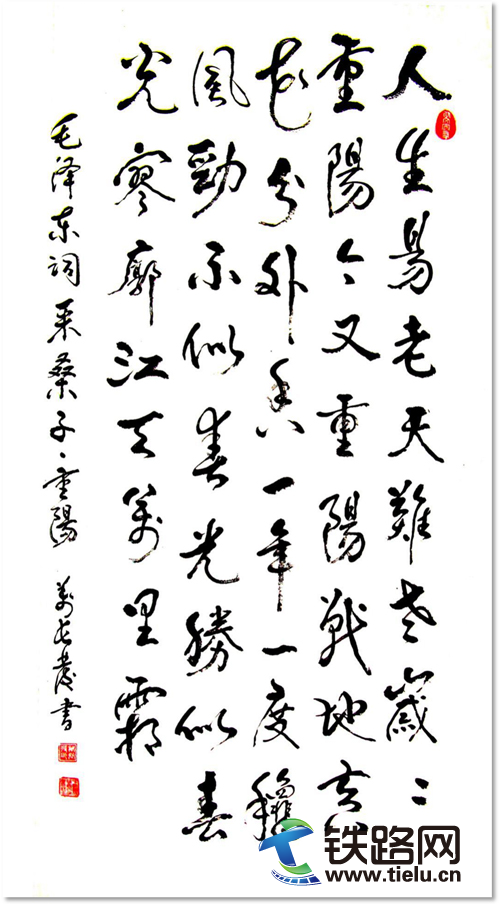 人生易老天難老歲〻
重陽今又重陽戰地黃
花分外香一年一度龝
風勁不似春光勝似春
光寥廓江天萬里霜
毛泽东词采桑子、重陽 萬长發書
铁路网
www.tielu.cn